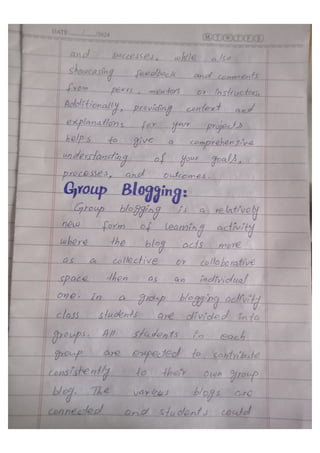 DATE / /202
M T W T F S
and successes, while also
showcasing feedback and comments
from peers, mentors or Instructors.
Additionally, providing context and
explanations for your projects
helps to give a comprehensive
understanding of your goals,
processes, and outcomes.
Group Blogging:
Group blogging is a relatively
new form of learning activity
where the blog acts more
as a collective or collaborative
space then as an individual
one. In a group blogging activity
class students are divided into
groups. All students in each
group are expected to contribute
consistently to their own group
blog. The various blogs are
connected and students could